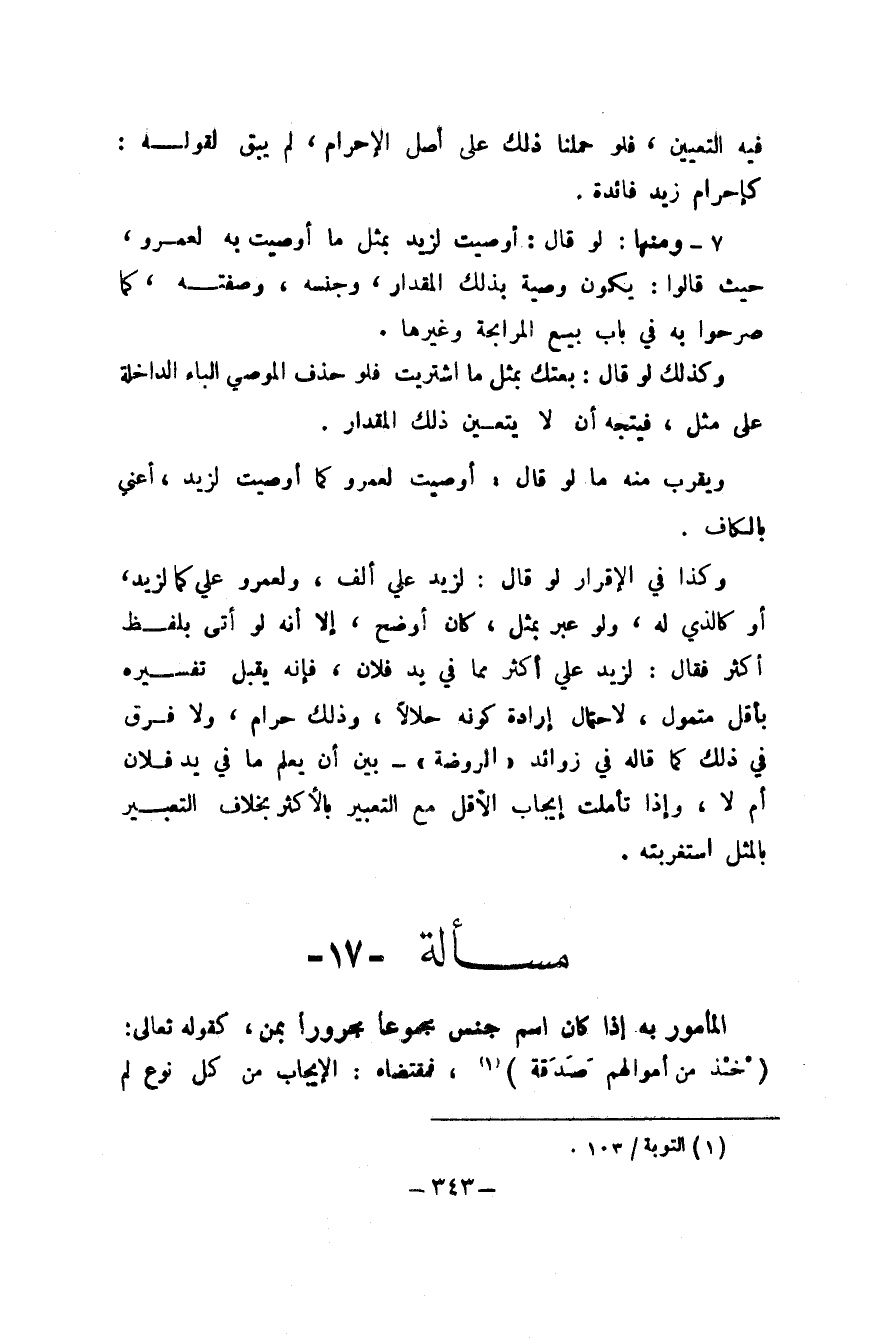 فيه التعيين ، فلو حملنا ذلك على أصل الإحرام ، لم يبق لقولـــه :
كإحرام زيد فائدة .
٧ ـ ومنها : لو قال : أوصيت لزيد بمثل ما أوصيت به لعمـرو ،
حيث قالوا : يكون وصية بذلك المقدار ، وجنسه ، وصفتـــه ، كما
صرحوا به في باب بيع المرابحة وغيرها .
وكذلك لو قال : بعتك بمثل ما اشتريت فلو حذف الموصي الباء الداخلة
على مثل ، فيتجه أن لا يتعـين ذلك المقدار .
ويقرب منه ما لو قال : أوصيت لعمرو كما أوصيت لزيد ، أعني
بالكاف .
وكذا في الإقرار لو قال : لزيد علي ألف ، ولعمرو علي كما لزيد ،
أو كالذي له ، ولو عبر بمثل ، كان أوضح ، إلا أنه لو أتى بلفــظ
أكثر فقال : لزيد علي أكثر مما في يد فلان ، فإنه يقبل تفســـيره
بأقل متمول ، لاحتمال إرادة كونه حلالاً ، وذلك حرام ، ولا فـرق
في ذلك كما قاله في زوائد « الروضة » ـ بين أن يعلم ما في يد فـلان
أم لا ، وإذا تأملت إيجاب الأقل مع التعبير بالأكثر بخلاف التعبـــير
بالمثل استغربته .
مســـألة -١٧-
المأمور به إذا كان اسم جنس مجموعاً مجروراً بمن ، كقوله تعالى :
( خُذ من أموالهم صَدَقة ) (١) ، فمقتضاه : الإيجاب من كل نوع لم
(١) التوبة / ١٠٣ .
ـ ٣٤٣ ـ